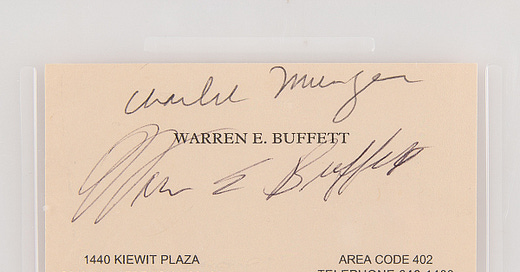 Charlie Munger
WARREN E. BUFFETT
Warren E Buffett
1440 KIEWIT PLAZA
AREA CODE 402
TELEPHONE